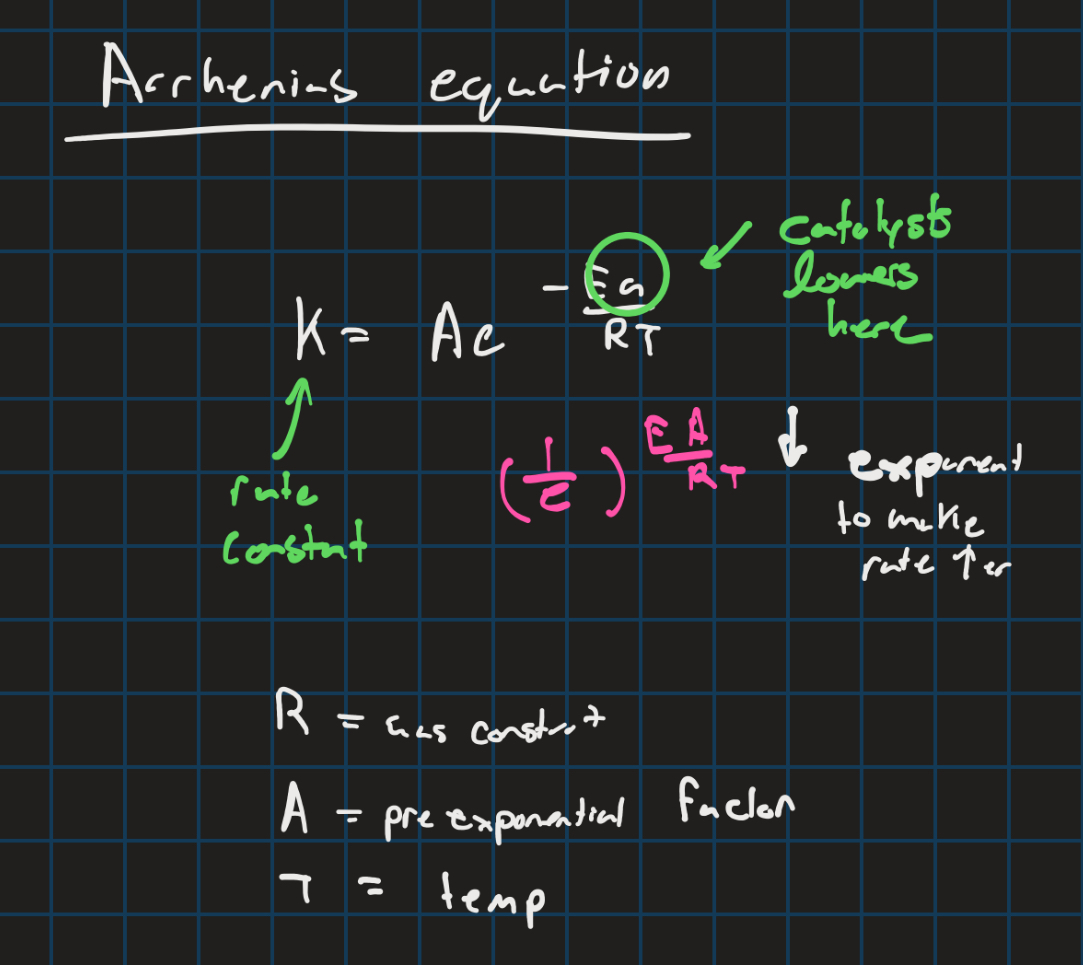 Arrhenius equation
catalysts
lowers
here
K = Ae^(-Ea/RT)
(1/e)^(EA/RT)
↓ exponent
to make
rate ↑er
rate
constant
R = gas constant
A = pre exponential factor
T = temp